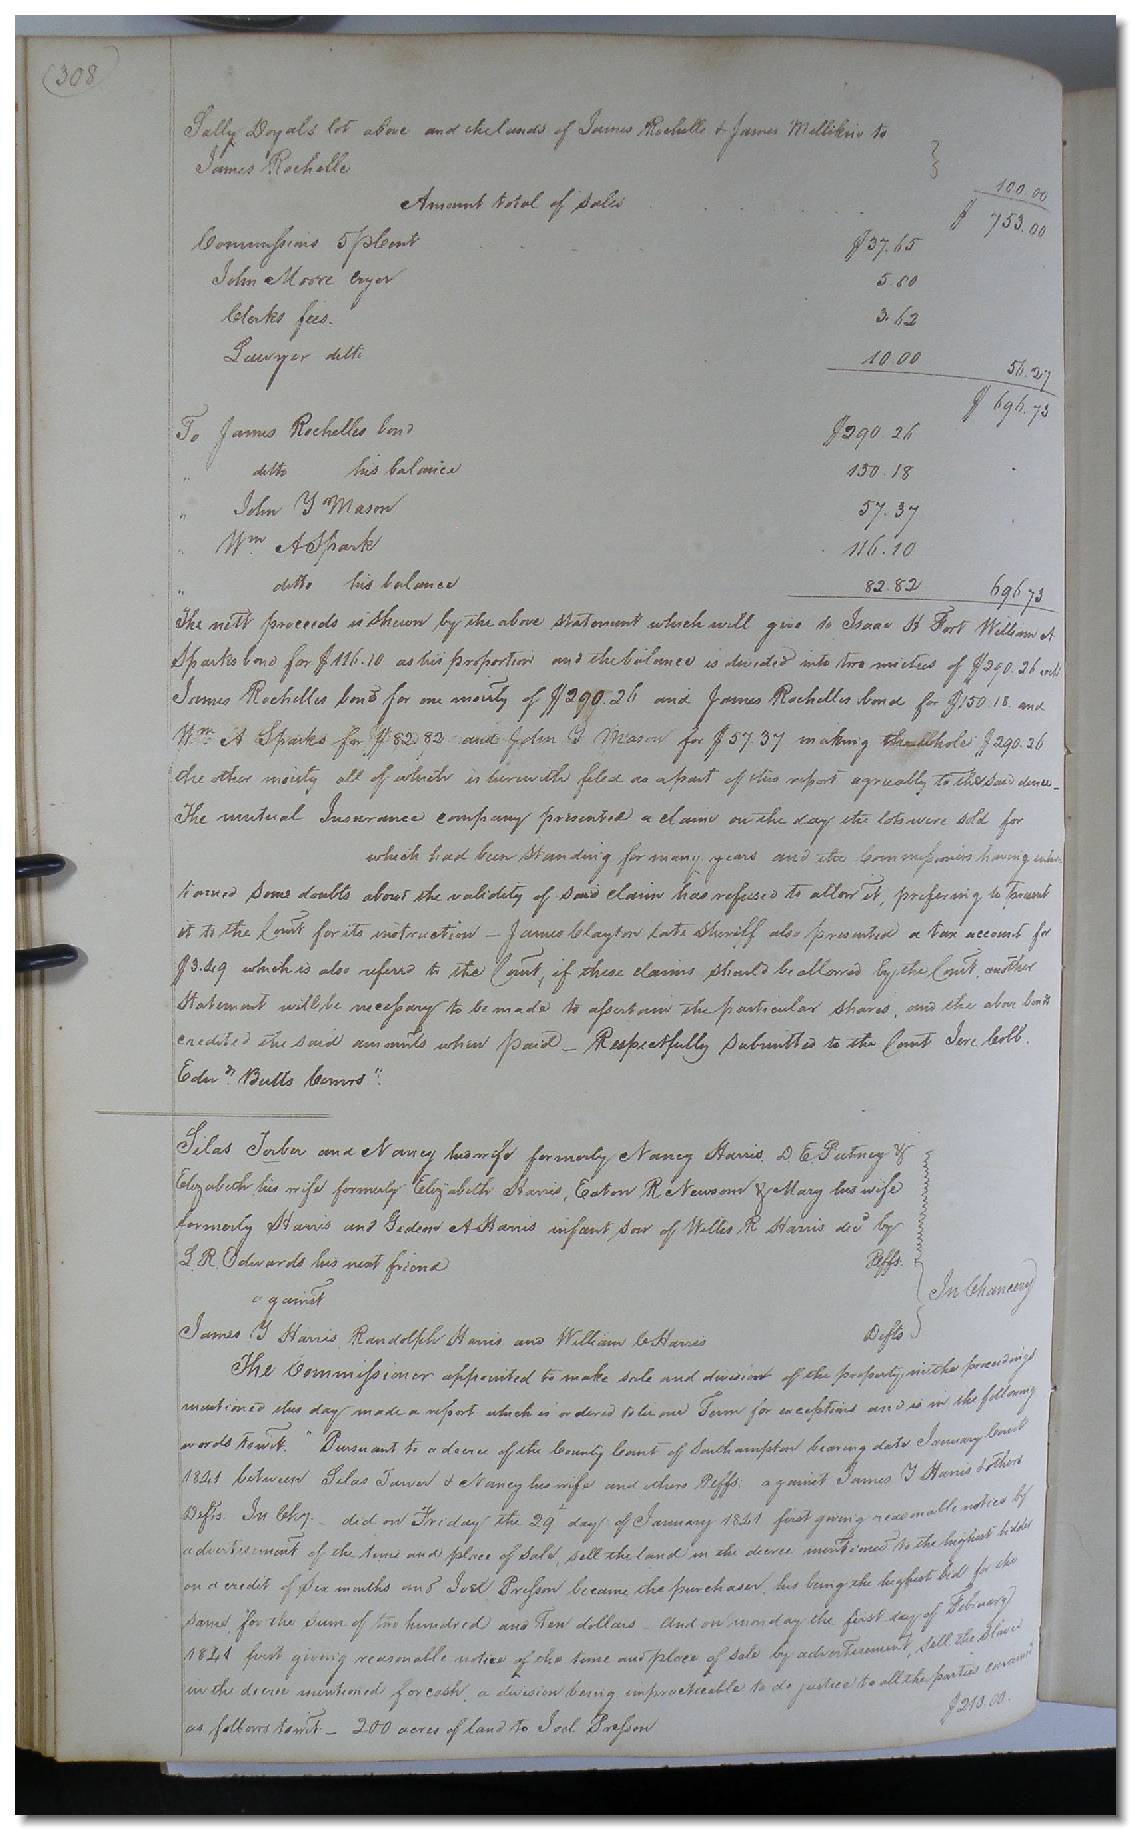 (308)
Sally Doyals lot above and the lands of James Rochelle & James Millikin to
James Rochelle
100.00
Amount total of sales $ 753.00
Commissions 5 pCent $37.65
John Moore cryer 5.00
Clerks fees. 3.62
Lawyer ditto 10.00 56.27
$ 696.73
To James Rochelles bond $290.26
" ditto his balance 150.18
" John Y Mason 57.37
" Wm A Spark 116.10
" ditto his balance 82.82 696.73
The nett proceeds is shewn by the above statement which will give to Isaac H Fort William A
Sparks bond for $116.10 as his proportion and the balance is devided into two mieties of $290.26 each
James Rochelles bond for one moiety of $290.26 and James Rochelles bond for $150.18 and
Wm A Sparks for $82.82 and John Y Mason for $57.37 making the whole $290.26
the other moiety all of which is herewith filed as a part of this report agreeably to the said decree_
The mutual Insurance company presented a claim on the day the lots were sold for
which had been standing for many years and the Commissioners having enter
tained some doubts about the validity of said claim has refused to allow it, prefering to present
it to the Court for its instruction _ James Clayton late Sheriff also presented a tax account for
$3.49 which is also referd to the Court, if these claims should be allowed by the Court, another
Statement will be necessary to be made to assertain the particular shares, and the above bonds
credited the said amounts when paid _ Respectfully submitted to the Court Jere Cobb.
Edwd Butts Comrs".
Silas and Nancy his wife formerly Nancy Harris. D. E Putney &
Elizabeth his wife formerly Elizabeth Harris, Eaton R Newsom & Mary his wife
formerly Harris and Gideon A Harris infant son of Willis R Harris decd by
L. R. Edwards his next friend Plffs.
against In Chancery
James Y Harris Randolph Harris and William C Harris Defts
The Commissioner appointed to make sale and division of the property in the proceedings
mentioned this day made a report which is ordered to lie one Term for exceptions and is in the following
words towit. "Pursuant to a decree of the County Court of Southampton bearing date January Court
1841 between Silas and Nancy his wife and others Plffs. against James Y Harris & others
Defts. In Chy. _ did on Friday the 29th day of January 1841 first giving reasonable notice by
advertisement of the time and place of sale, sell the land in the decree mentioned to the highest bidder
on a credit of six months and Joel Presson became the purchaser, his being the highest bid for the
same, for the sum of two hundred and ten dollars _ And on monday the first day of February
1841 first giving reasonable notice of the time and place of sale by advertisement, sell the slaves
in the decree mentioned for cash, a division being impracticeable to do justice to all the parties concerned
as follows towit _ 200 acres of land to Joel Presson $210.00.